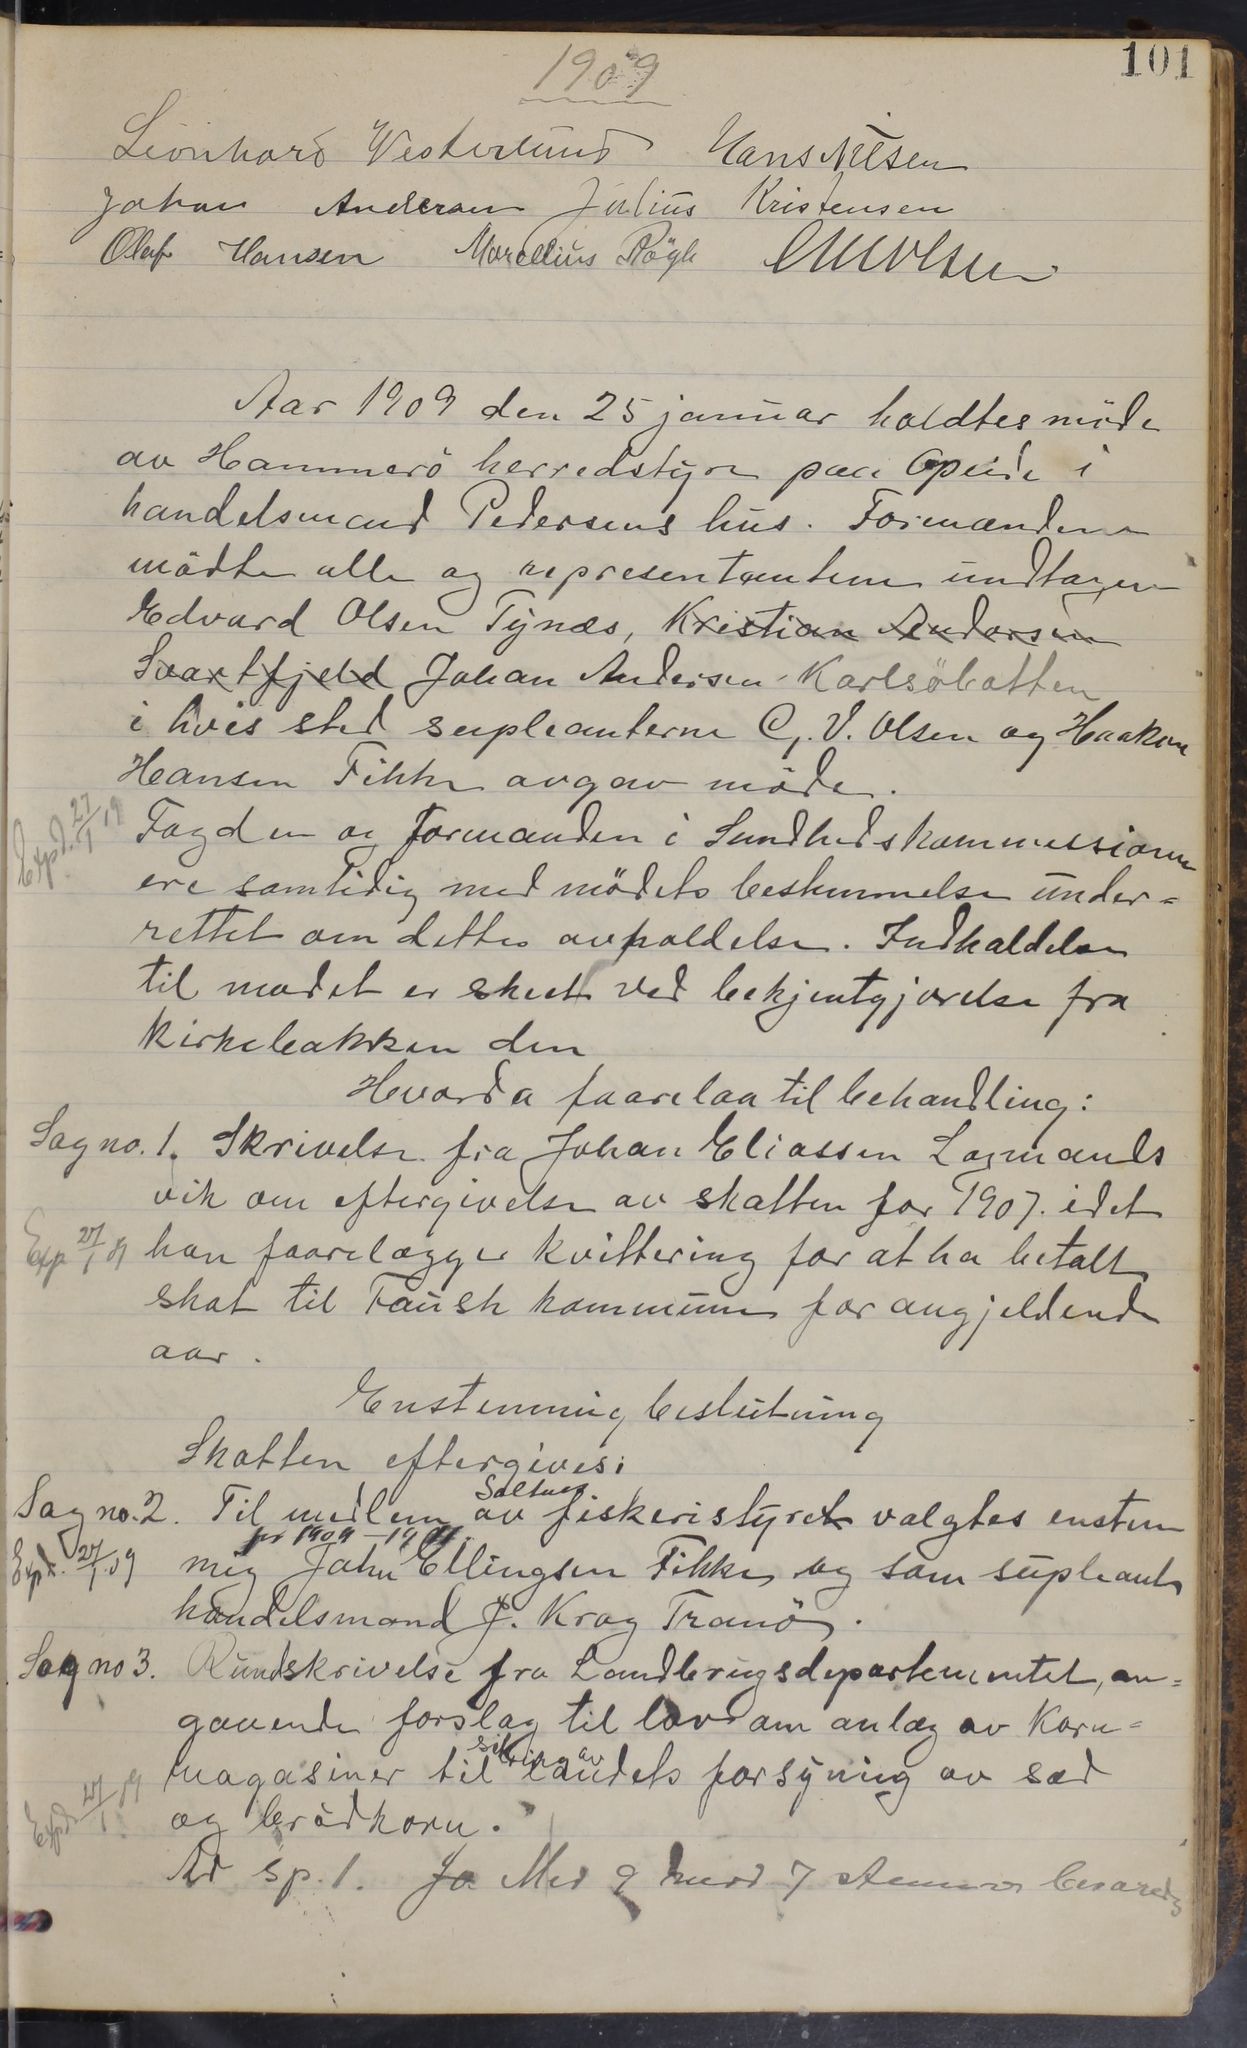 101
1909
Leonhard Westerlund Hans Nilsen
Johan Andersen Julius Kristensen
Olaf Hansen Marcelius Rögh
Aar 1909 den 25 januar holdtes möde
av Hammerö herredstyre paa Opeide i
handelsmand Pedersens hus. Formændene
mödte alle og representanterne undtagen
Edvard Olsen Tynæs, Kristian Andersen
Svartfjeld Johan Andersen Karlsöbotten
i hvis sted supleanterne C. V. Olsen og Haakon
Hansen Fikke avgav möde.
Expd. 27/1 09 Fogden og formanden i Sundhedskommissionen
ere samtidig med mödets bestemmelse under-
rettet om dettes avholdelse. Indkaldelse
til mødet er skeet ved bekjentgjørelse fra
kirkebakken den
Hvorda faarelaa til behandling:
Sag no. 1. Skrivelse fra Johan Eliassen Lagmands
vik om eftergivelse av skatten for 1907. idet
Exp 27/1 09 han faarelægger kvittering for at ha betalt
skat til Fausk kommune for angjeldende
aar.
Enstemmig beslutning
Skatten eftergives.
Saltens
Sag no. 2. Til medlem av fiskeristyret valgtes enstem
for 1909 - 1911
Expd. 27/1 09 mig John Ellingsen Fikke og som supleant
handelsmand J. Krog Tranö.
Sag no 3. Rundskrivelse fra Landbrugsdepartementet, an-
gaaende forslag til lov om anlæg av Korn-
sikring av
magasiner til landets forsyning av sæd
Expd 27/1 09 og brödkorn.
Ad sp. 1. Ja Med 9 mod 7 stemmer besvaredes